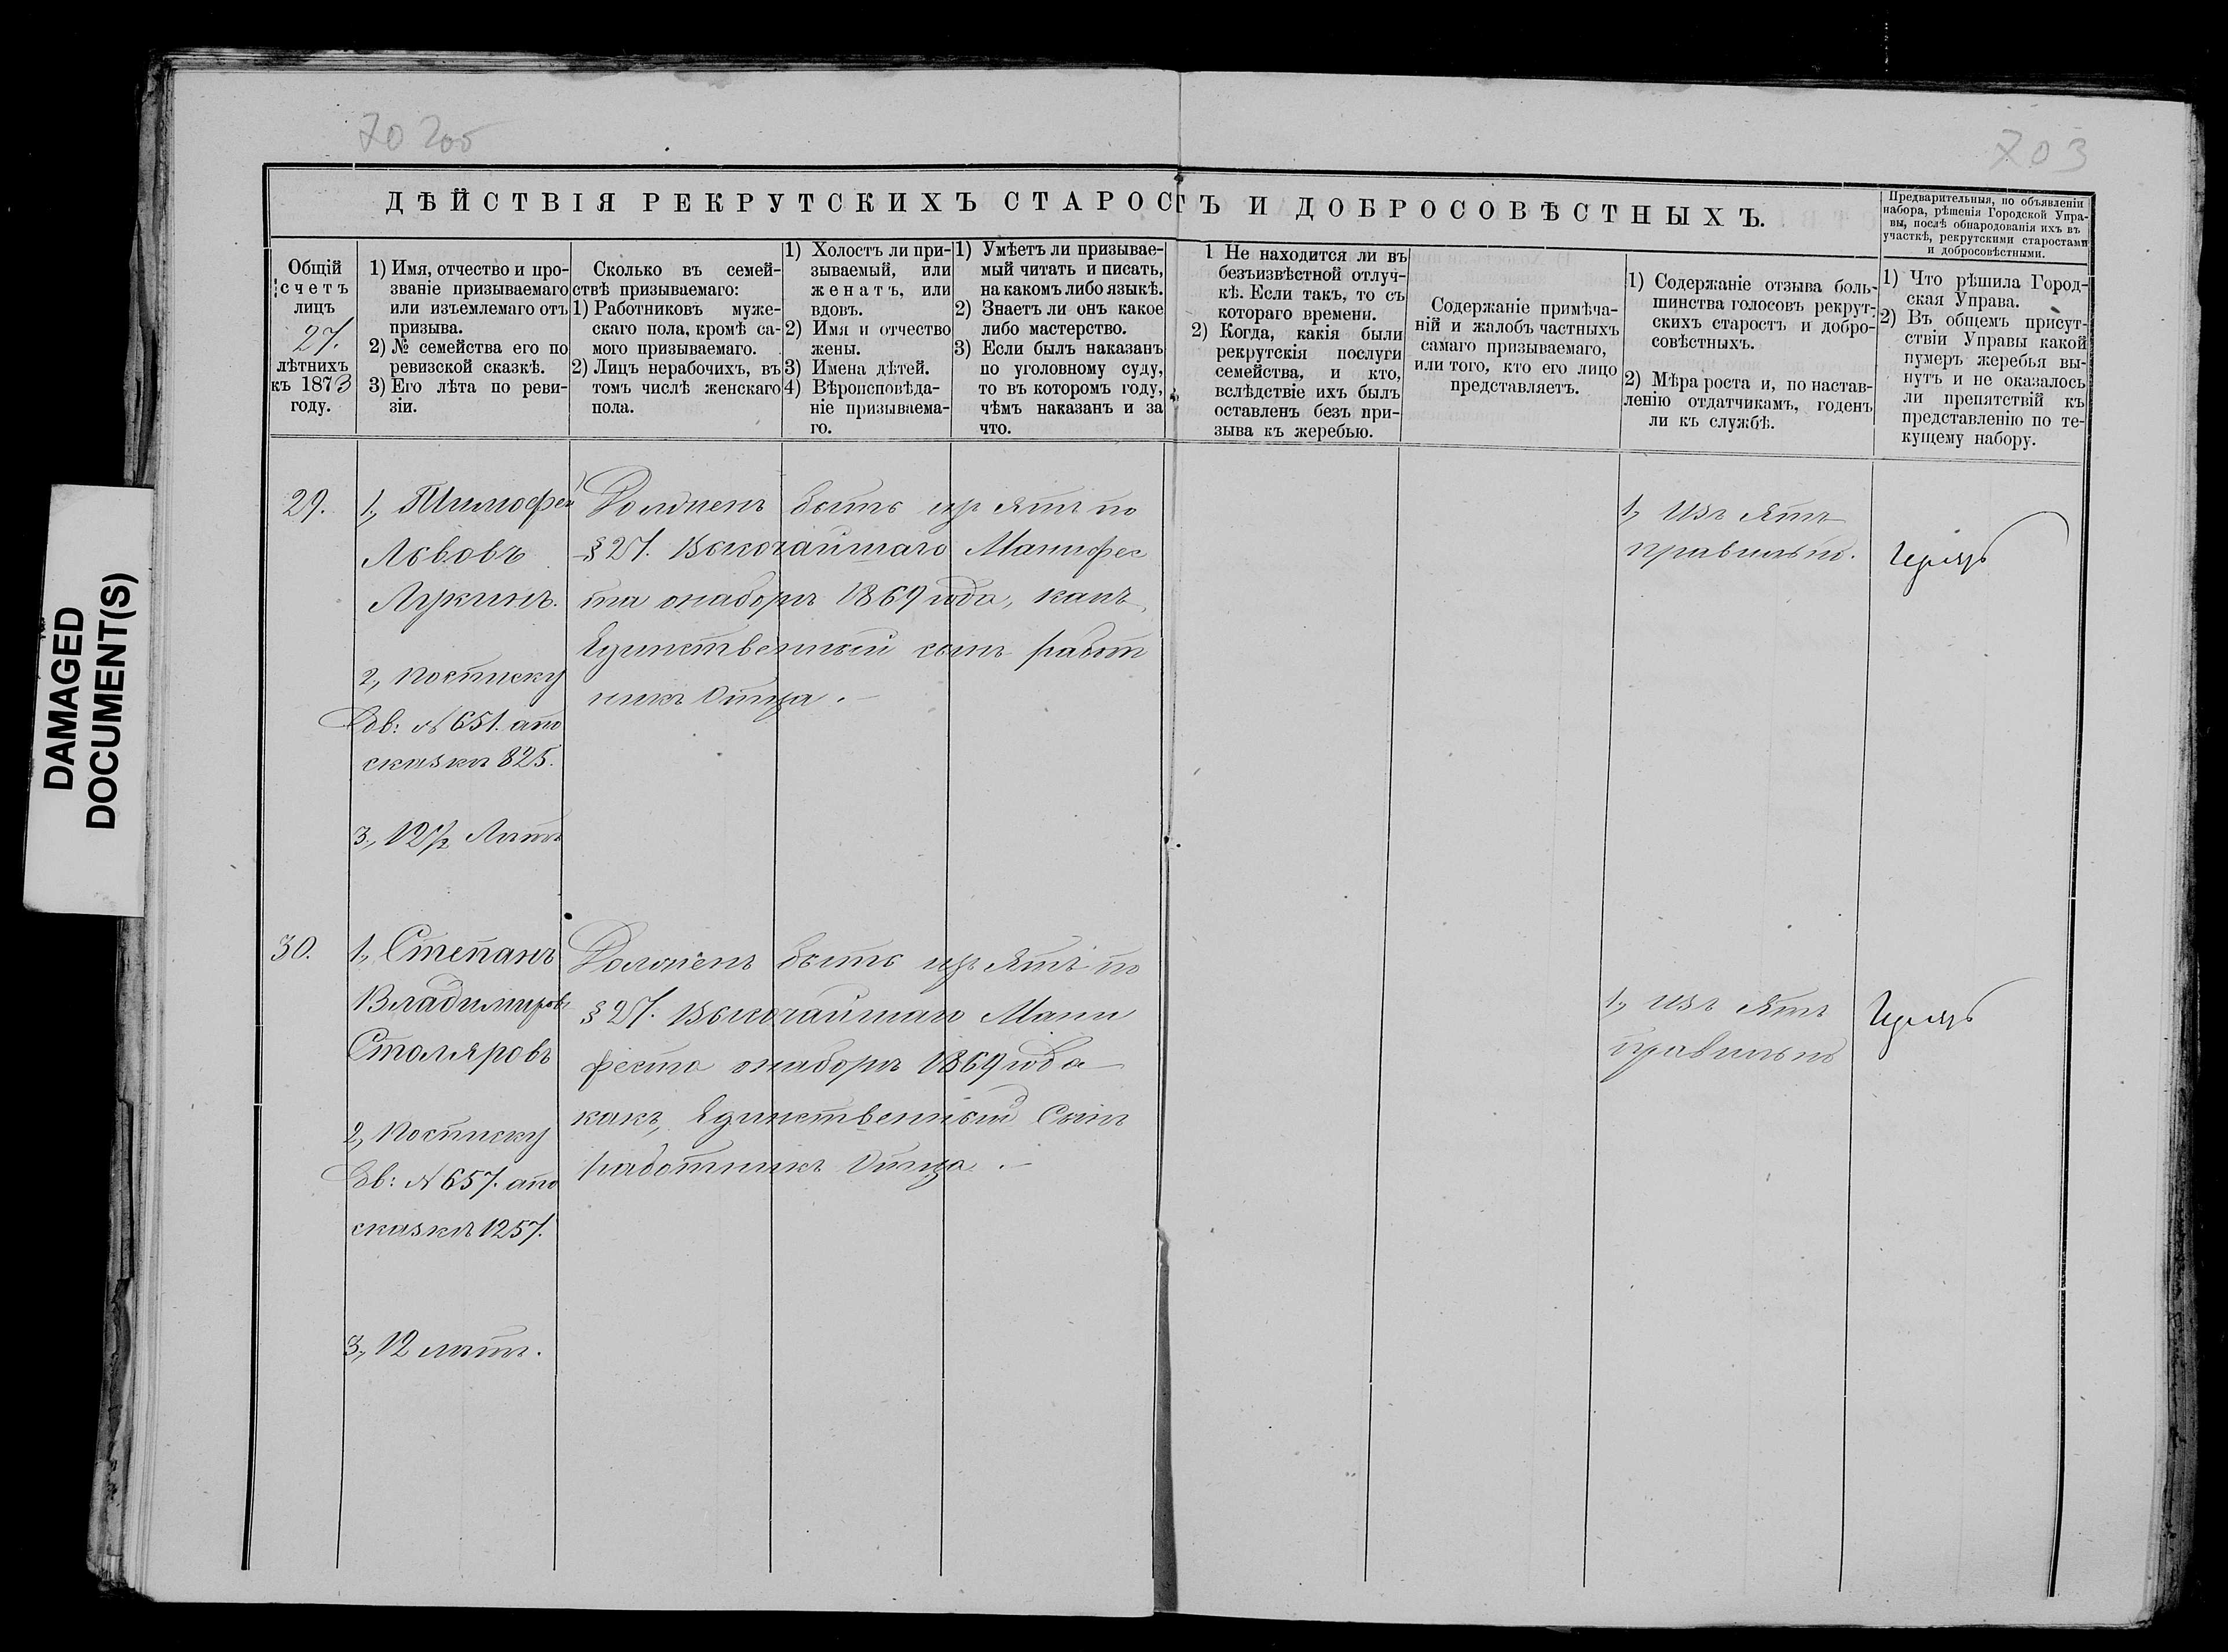 DAMAGED
DOCUMENT(S)
203
ДѢЙСТВІЯ РЕКРУТСКИХЪ СТАРОСТЪ И ДОБРОСОВѢСТНЫХЪ.
Предварительныя, по объявленіи
набора, рѣшенія Городской Упра-
вы, послѣ обнародованія ихъ въ
участкѣ, рекрутскими старостами
и добросовѣстными.
Общій
счетъ
лицъ
27.
лѣтнихъ
къ 1873
году.
1) Имя, отчество и про-
званіе призываемаго
или изъемлемаго отъ
призыва.
2) № семейства его по
ревизской сказкѣ.
3) Его лѣта по реви-
зіи.
Сколько въ семей-
ствѣ призываемаго:
1) Работниковъ муже-
скаго пола, кромѣ са-
мого призываемаго.
2) Лицъ нерабочихъ, въ
томъ числѣ женскаго
пола.
1) Холостъ ли при-
зываемый, или
женатъ, или
вдовъ.
2) Имя и отчество
жены.
3) Имена дѣтей.
4) Вѣроисповѣда-
ніе призываема-
го.
1) Умѣетъ ли призывае-
мый читать и писать,
на какомъ либо языкѣ.
2) Знаетъ ли онъ какое
либо мастерство.
3) Если былъ наказанъ
по уголовному суду,
то въ которомъ году,
чѣмъ наказанъ и за
что.
1 Не находится ли въ
безъизвѣстной отлуч-
кѣ. Если такъ, то съ
котораго времени.
2) Когда, какія были
рекрутскія послуги
семейства, и кто,
вслѣдствіе ихъ былъ
оставленъ безъ при-
зыва къ жеребью.
Содержаніе примѣча-
ній и жалобъ частныхъ
самаго призываемаго,
или того, кто его лицо
представляетъ.
1) Содержаніе отзыва боль-
шинства голосовъ рекрут-
скихъ старостъ и добро-
совѣстныхъ.
2) Мѣра роста и, по настав-
ленію отдатчикамъ, годенъ
ли къ службѣ.
1) Что рѣшила Город-
ская Управа.
2) Въ общемъ присут-
ствіи Управы какой
нумеръ жеребья вы-
нутъ и не оказалось
ли препятствій къ
представленію по те-
кущему набору.
29.
1, Тимофей
Львовъ
Лукинъ.
2, Посписку
Дв: № 651. апо
сказкѣ 825.
3, 12½ Лѣтъ
Долженъ быть изъятъ по
§ 27. Высочайшаго Манифес
та онаборѣ 1869 года, какъ,
Единственный сынъ работ
никъ Отца.
1, Изъятъ
правильно.
30.
1, Степанъ
Владимировъ
Столяровъ
2, Посписку
Дв: № 657. апо
сказкѣ 1257.
3, 12 лѣтъ.
Долженъ быть изъятъ по
§ 27. Высочайшаго Мани
феста онаборѣ 1869 года
какъ, Единственный Сынъ
работникъ Отца.
1, Изъятъ
правильно